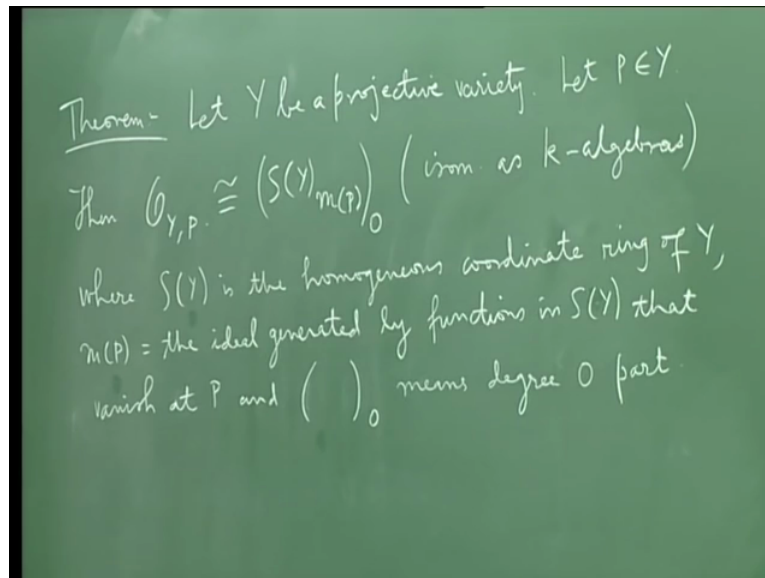 Theorem- Let Y be a projective variety. Let P ∈ Y.
Then 𝒪_{Y,P} ≅ (S(Y)_{m(P)})_0 (isom. as k-algebras)
where S(Y) is the homogeneous coordinate ring of Y,
m(P) = the ideal generated by functions in S(Y) that
vanish at P and ( )_0 means degree 0 part.